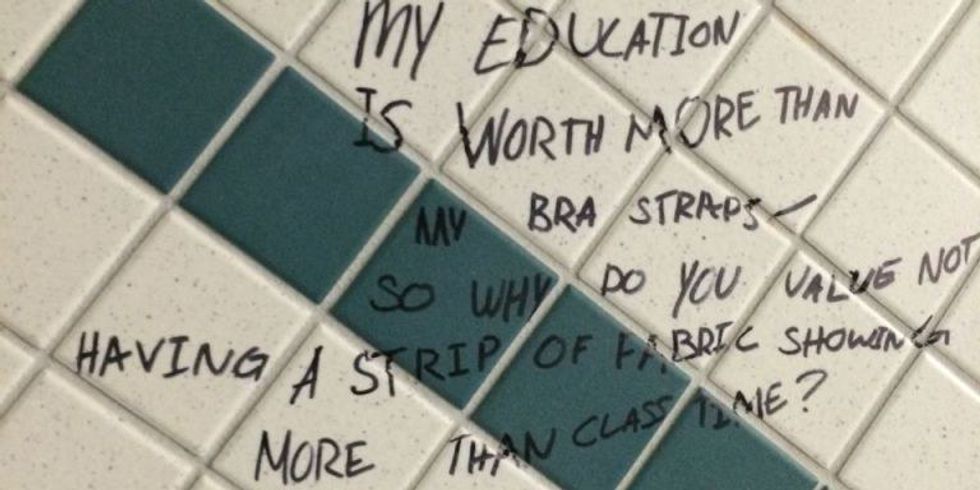 MY EDUCATION
IS WORTH MORE THAN
MY BRA STRAPS—
SO WHY DO YOU VALUE NOT
HAVING A STRIP OF FABRIC SHOWING
MORE THAN CLASS TIME?